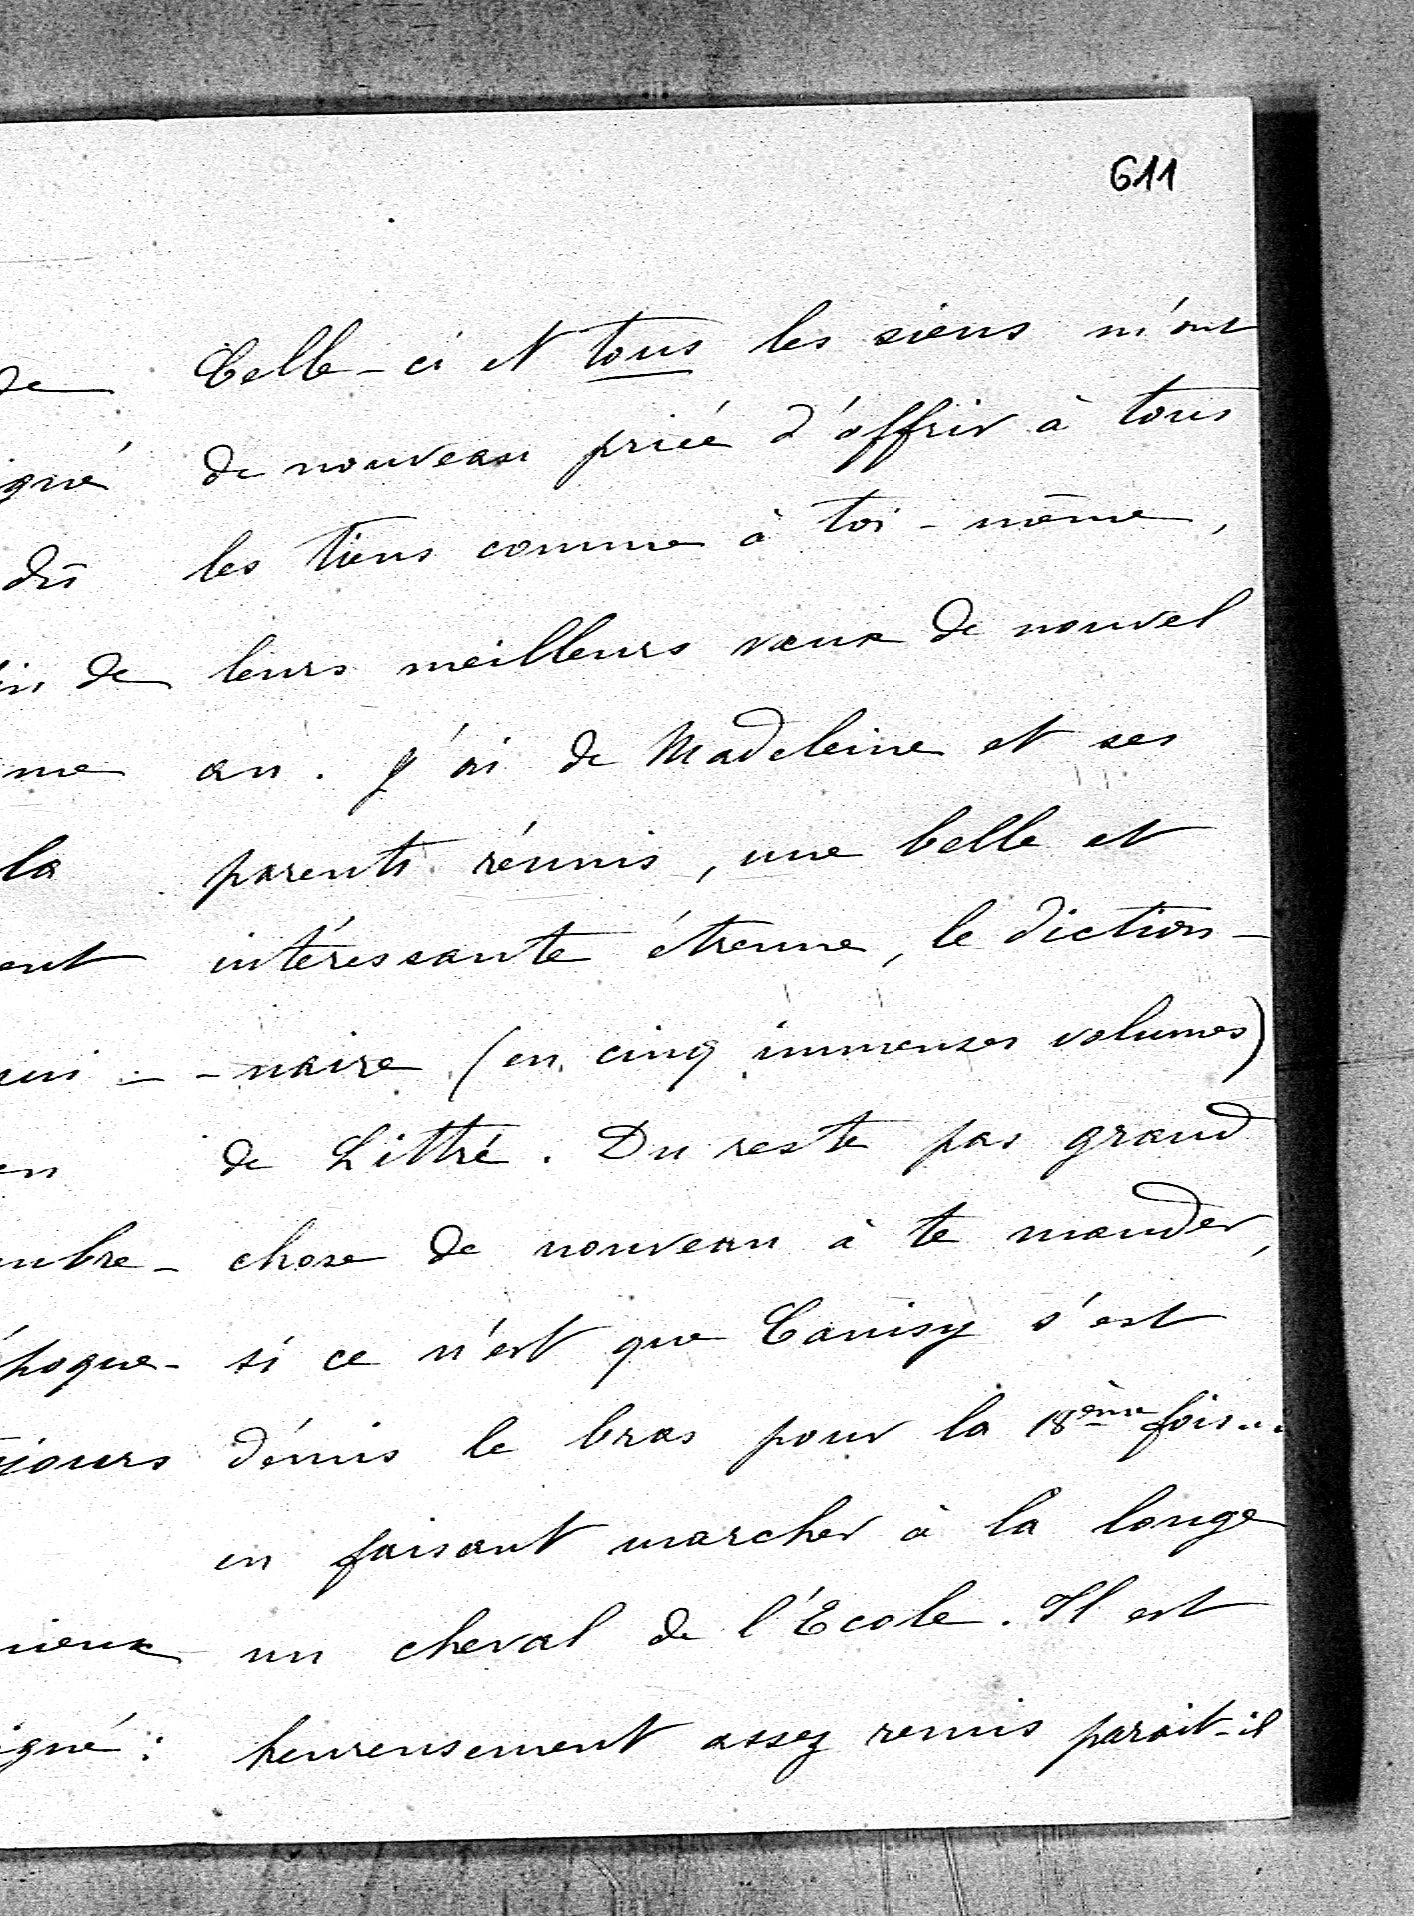 611
Celle-ci et tous les siens m'ont
de nouveau priée d'offrir à tous
les tiens comme à toi-même,
leurs meilleurs vœux de nouvel
an. J'ai de Madeleine et ses
parents réunis, une belle et
intéressante étrenne, le diction-
-naire (en cinq immenses volumes)
de Littré. Du reste pas grand
chose de nouveau à te mander,
si ce n'est que Canisy s'est
démis le bras pour la 18ème fois...
en faisant marcher à la longe
un cheval de l'Ecole. Il est
heureusement assez remis parait-il